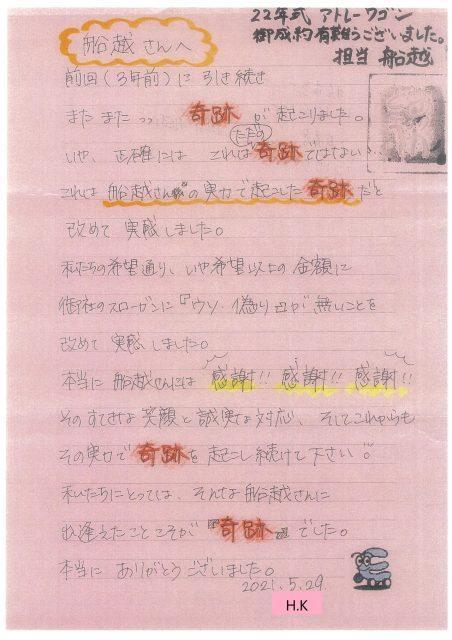 22年式 アトレーワゴン
御成約有難うございました。
担当 船越
船越さんへ
前回(3年前)に引き続き
またまたっっ 奇跡が起こりました。
いや、正確には これはただの奇跡ではない、
これは 船越さんの実力で起こした奇跡だと
改めて 実感しました。
私たちの希望通り、いや希望以上の金額に
御社のスローガンに『ウソ・偽り』が無いことを
改めて 実感しました。
本当に 船越さんには 感謝!! 感謝!! 感謝!!
そのすてきな笑顔と誠実な対応、そしてこれからも
その実力で 奇跡を起こし続けて下さい。
私たちにとっては、そんな船越さんに
出逢えたことこそが『奇跡』でした。
本当に ありがとうございました。
2021.5.29
H.K